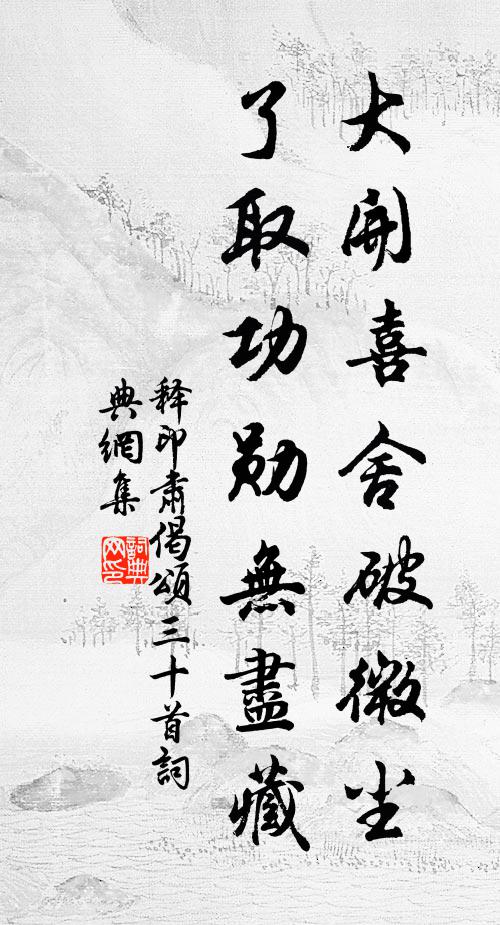 大開喜舍破微尘
了取功勛無盡藏
释印肅偈頌三十首詞
典網集
詞典网印